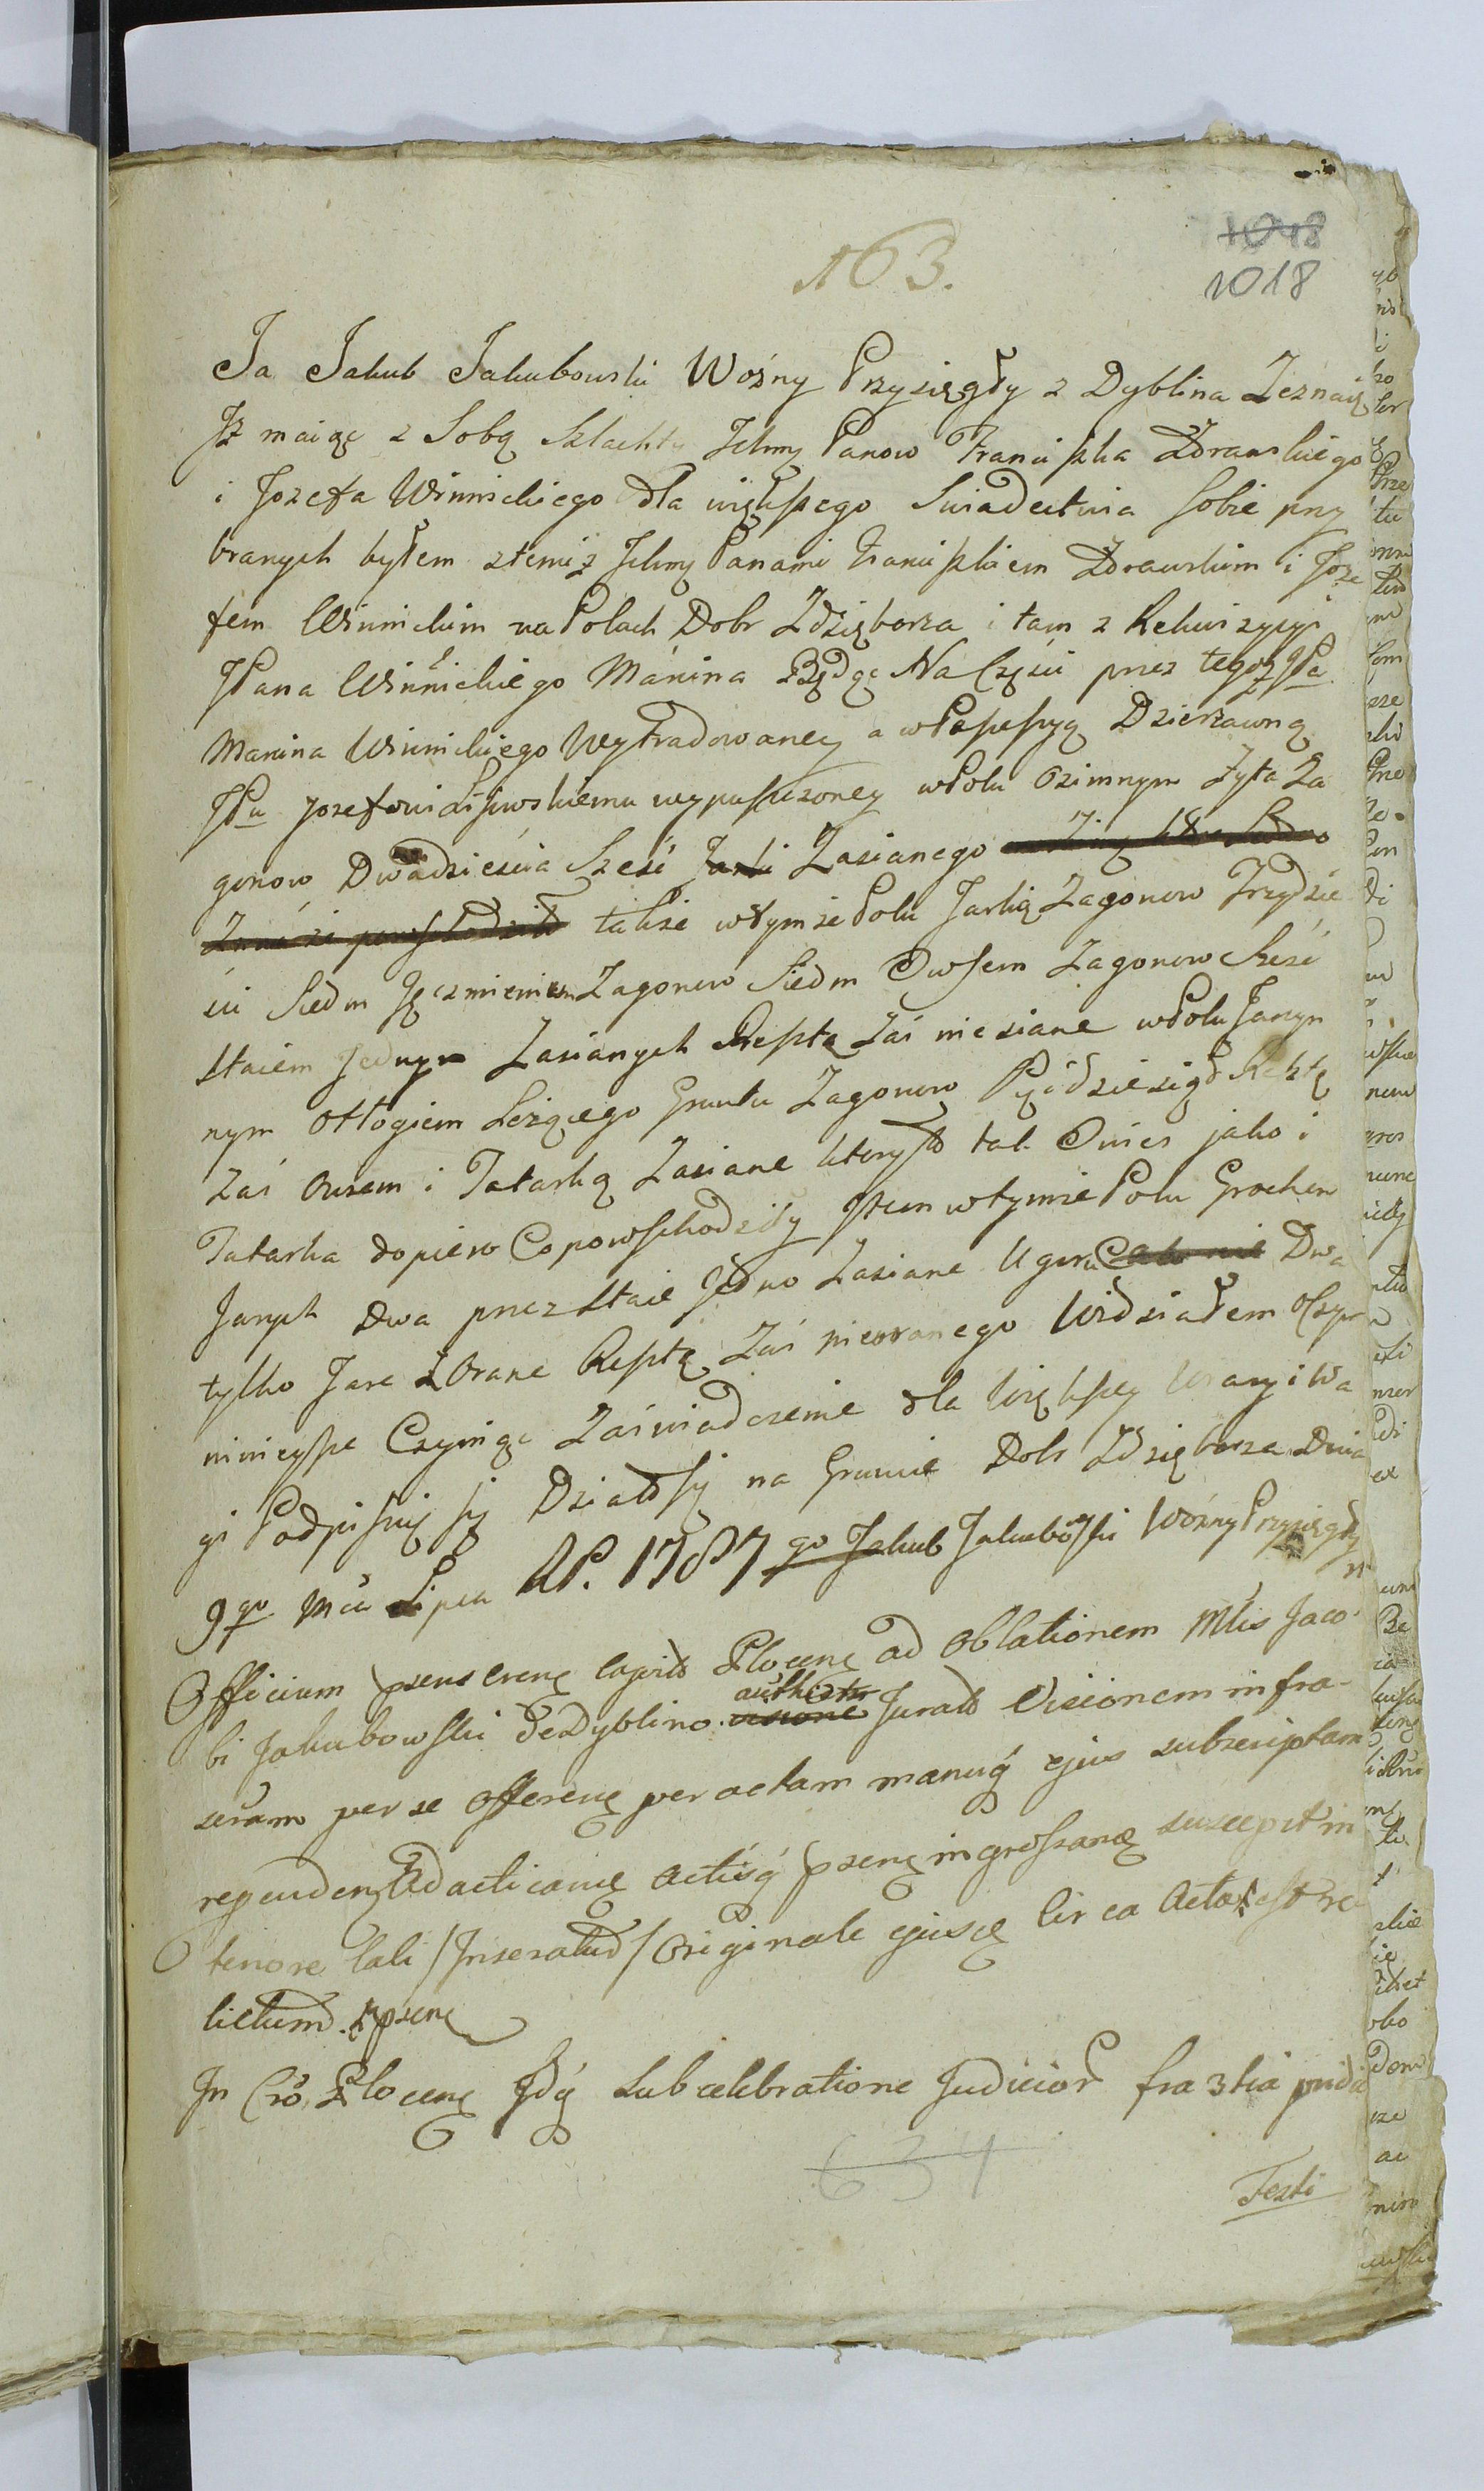 1018
163.
1018
Ja Jakub Jakubowski Woźny Przysięgły z Dyblina Zeznaię
Jż maiąc z Sobą Szlachtę Jchmc Panow Franciszka Zdrawskiego
i Jozefa Winnickiego dla większego Swiadectwa sobie przy
branych byłem z temiż Jchmc Panami Franciszkiem Zdrawskim i Joze
fem Winnickim na Polach Dobr Zdzięborza i tam z Rekwizycyi
JPana Winnickiego Manina Będąc Na Częsci przez tegoż JPa
Manina Winnickiego Wytradowaney a w Possessyą Dzierzawną
JPu Jozefowi Lissowskiemu wypuszczoney w Polu Ozimnym Zyta Za
gonow Dwadziescia Szesć Zasianego
także w tymże Polu Jarką Zagonow Trzydzie
sci Siedm Jęczmieniem Zagonow Siedm Owsem Zagonow Szesć
Staiem Jednym Zasianych Resztę Zaś nie siane w Polu Jarzyn
nym Ottogiem Leżącego Gruntu Zagonow Pięćdziesiąt Resztę
zaś Owsem i Tatarką Zasiane ktory to tak Owies jako i
Tatarka dopiero Co powschodziły Jtem w tymże Polu Grochem
Jarych Dwa przez Staie Jedno Zasiane Ugoru Dwa
tylko Jare Zorane Resztę Zaś nieoranego Widziałem o Czym
ninieysze Czyniąc Zaświadczenie dla większey Wiary i Wa
gi Podpisuię się Działo się na Gruncie Dobr Zdzięborza Dnia
9go Mca Lipca RP. 1787go Jakub Jakubowski Woźny Przysięgły
Officium psens Crense Capitle Plocens ad Oblationem Mtis Jaco-
bi Jakubowski de Dyblino authentr Jurato Visionem infra-
scram per se Offerens peractam manuq ejus subscriptam
regenden Adacticans Actisq psens ingrossans suscepit in
tenore tali /Inseratur/ Originale ejusd Circa Acta est re
lictum psens
In Cro Plocens Jdq Sub celebratione Judicior fra 3tia pridie
634
Festi